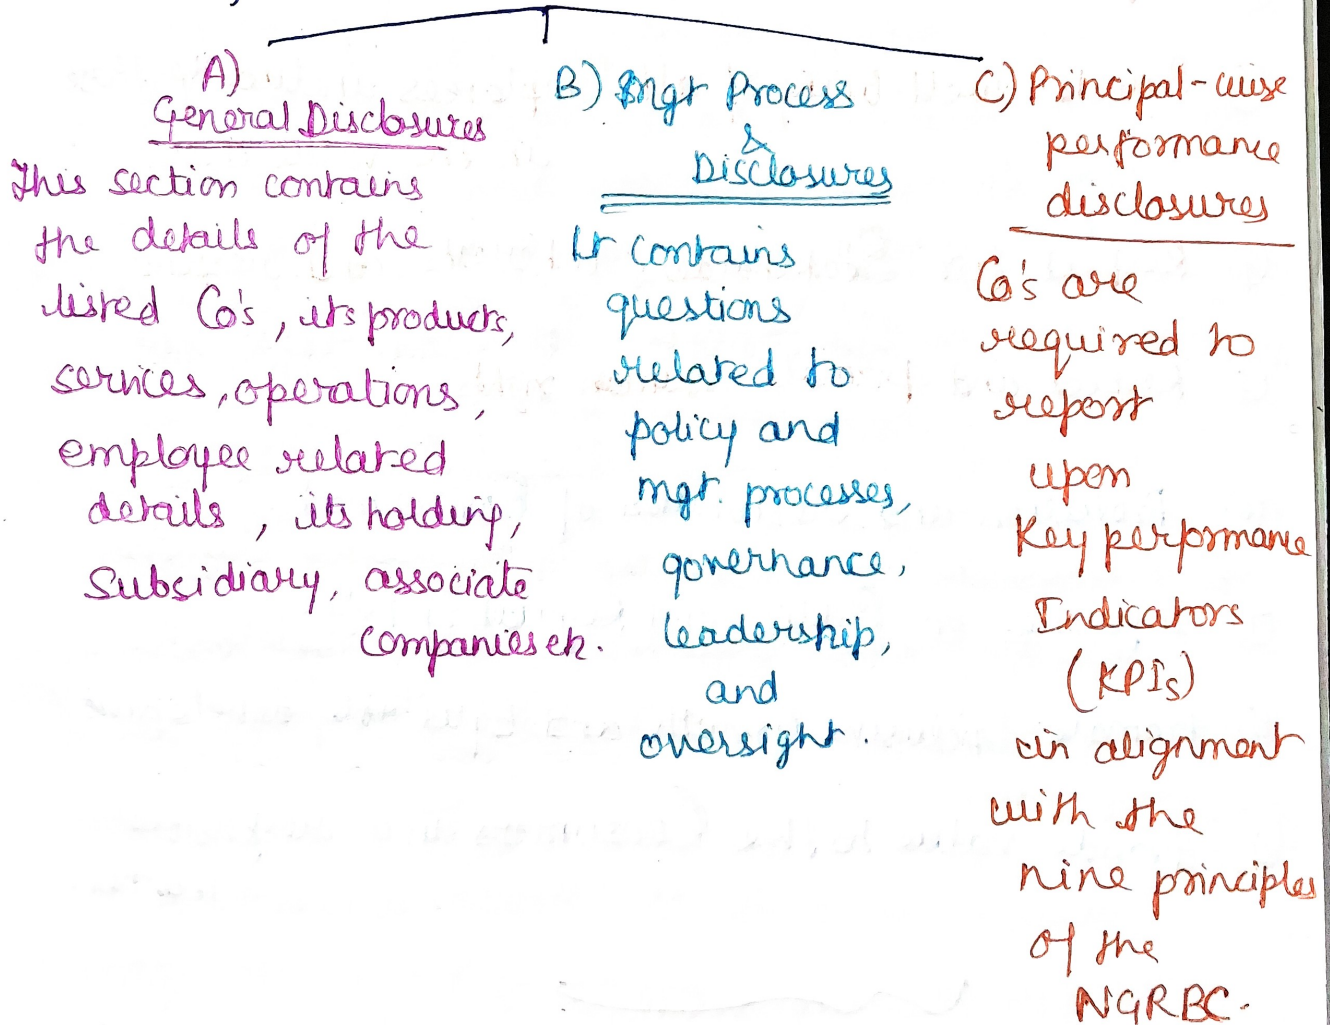 A)
General Disclosures
This section contains
the details of the
listed Co's, its products,
services, operations,
employee related
details, its holding,
Subsidiary, associate
companies etc.
B) Mgt Process
&
Disclosures
It contains
questions
related to
policy and
mgt. processes,
governance,
leadership,
and
oversight.
C) Principal-wise
performance
disclosures
Co's are
required to
report
upon
Key performance
Indicators
(KPIs)
in alignment
with the
nine principles
of the
NGRBC.